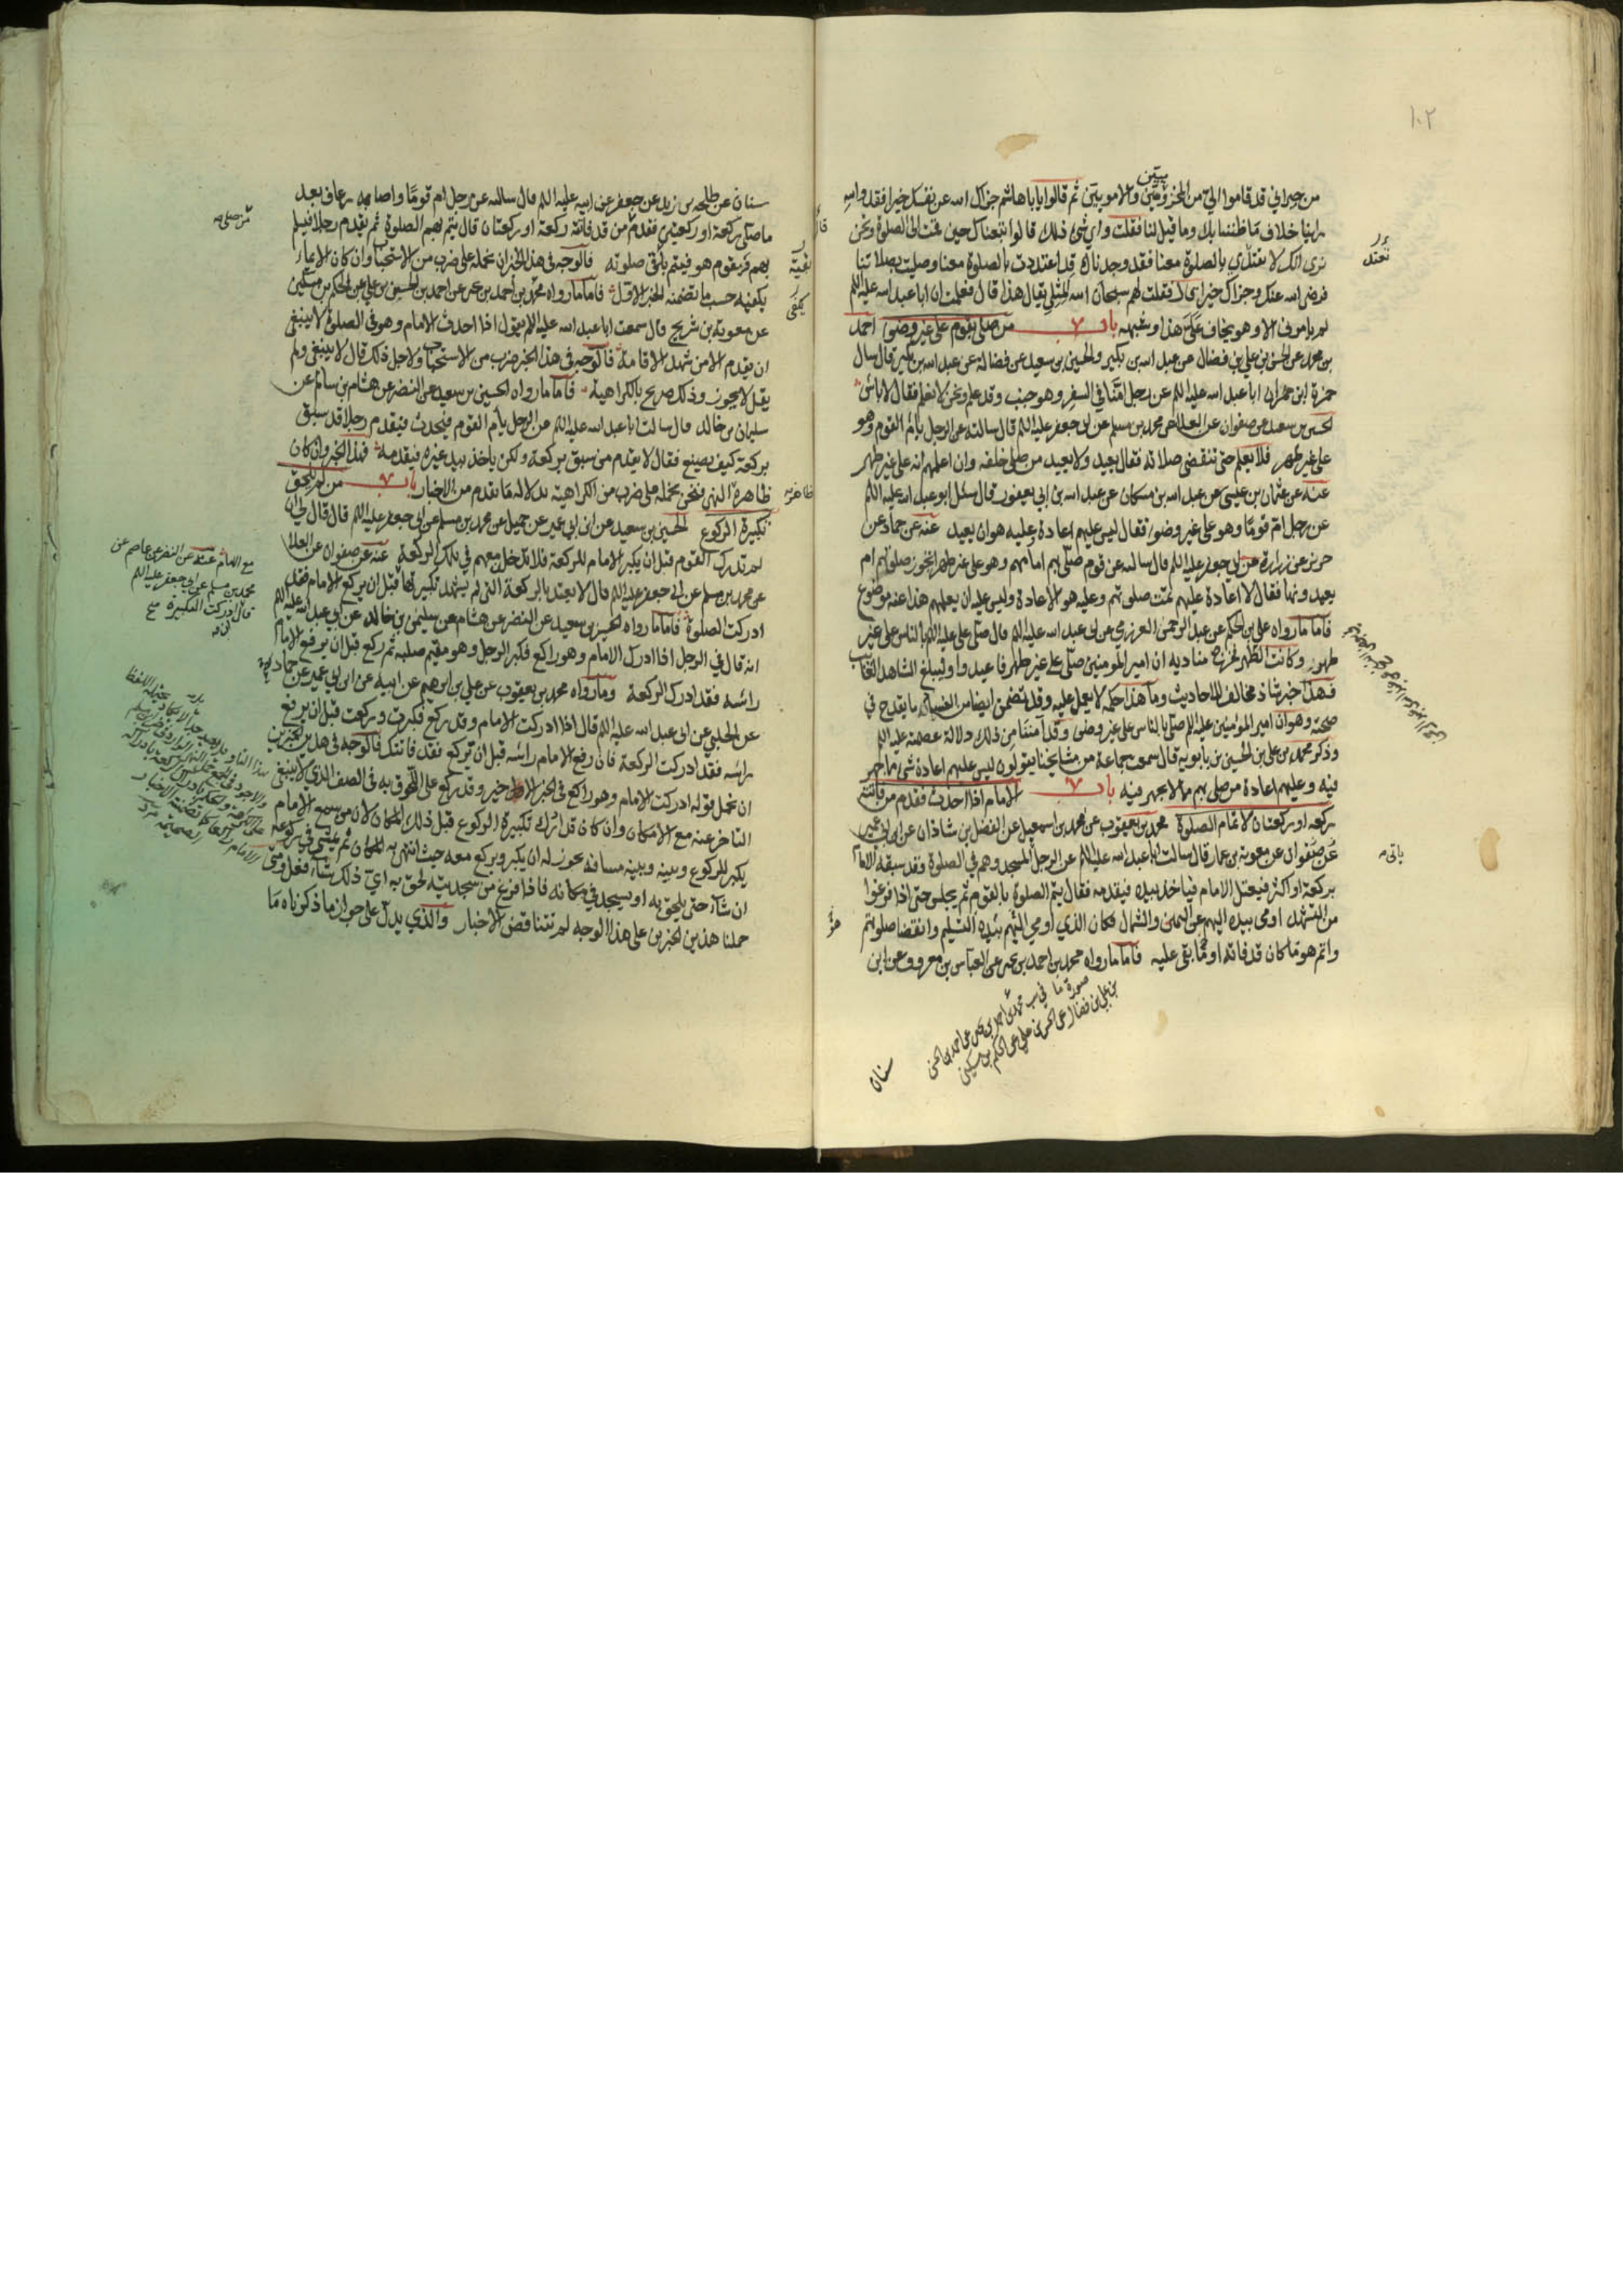 ١٠٢
من جيراني قد قاموا الي من المخزوميين والامويين ثم قالوا يا با هاشم جزاك الله عن نفسك خيرا فقد والله
راينا خلاف ما ظننا بك وما قيل لنا فقلت واي شئ ذلك قالوا اتبعناك حين قمت الى الصلوة ونحن
نرى انك لا تعتدي بالصلوة معنا فقد وجدناك قد اعتددت بالصلوة معنا وصليت بصلاتنا
فرضي الله عنك وجزاك خيرا قال فقلت لهم سبحان الله المثلي يقال هذا قال فعلمت ان ابا عبد الله عليه السلم
لم يامرني الا وهو يخاف علي هذا وشبهه باب من صلى بقوم على غير وضوء احمد
بن محمد عن الحسن بن علي بن فضال عن عبد الله بن بكير والحسين بن سعيد عن فضالة عن عبد الله بن بكير قال سال
حمزة ابن حمران ابا عبد الله عليه السلم عن رجل امنا في السفر وهو جنب وقد علم ونحن لا نعلم فقال لا باس
الحسين بن سعيد عن صفوان عن العلا عن محمد بن مسلم عن ابي جعفر عليه السلم قال سالته عن الرجل يام القوم وهو
على غير طهر فلا يعلم حتى تنقضى صلاته فقال يعيد ولا يعيد من صلى خلفه وان اعلمهم انه على غير طهر
عنه عن عثمان بن عيسى عن عبد الله بن مسكان عن عبد الله بن ابي يعفور قال سئل ابو عبد الله عليه السلم
عن رجل ام قوما وهو على غير وضوء فقال ليس عليهم اعادة وعليه هو ان يعيد عنه عن حماد عن
حريز عن زرارة عن ابي جعفر عليه السلم قال سالته عن قوم صلى بهم امامهم وهو على غير طهر اتجوز صلوتهم ام
يعيدونها فقال لا اعادة عليهم تمت صلوتهم وعليه هو الاعادة وليس عليه ان يعلمهم هذا عنه موضوع
فاما ما رواه علي بن الحكم عن عبد الرحمن العرزمي عن ابي عبد الله عليه السلم قال صلى علي عليه السلم بالناس على غير
طهور وكانت الظهر فخرج مناديه ان امير المومنين صلى على غير طهر فاعيدوا وليبلغ الشاهد الغايب
فهذا خبر شاذ مخالف للاحاديث وما هذا حكمه لا يعمل عليه وقد تضمن ايضا من الفساد ما يقدح في
صحته وهو ان امير المومنين عليه السلم صلى بالناس على غير وضوء وقد آمننا من ذلك دلالة عصمته عليه السلم
وذكر محمد بن علي بن الحسين بن بابويه قال سمعت جماعة من مشايخنا يقولون ليس عليهم اعادة شئ مما جهر
فيه وعليهم اعادة من صلى بهم مما لا يجهر فيه باب الامام اذا احدث فقدم من فاتته
ركعة او ركعتان لاتمام الصلوة محمد بن يعقوب عن محمد بن اسمعيل عن الفضل بن شاذان عن ابن ابي عمير
عن صفوان عن معوية بن عمار قال سالت ابا عبد الله عليه السلم عن الرجل المسجد وهم في الصلوة وقد سبقه الامام
بركعة او اكثر فيعتل الامام فياخذ بيده فيقدمه فقال يتم الصلوة بالقوم ثم يجلس حتى اذا فرغوا
من التشهد اومى بيده اليهم عن اليمين والشمال فكان الذي اومي اليهم بيده التسليم وانقضا صلوتهم
واتم هو ما كان قد فاته او ما بقي عليه فاما ما رواه محمد بن احمد بن يحيى عن العباس بن معروف عن ابن
سنان
سنان عن طلحة بن زيد عن جعفر عن ابيه عليه السلم قال سالته عن رجل ام قوما واصابه رعاف بعد
ما صلى ركعة او ركعتين فقدم من قد فاتته ركعة او ركعتان قال يتم بهم الصلوة ثم يقدم رجلا فيسلم
بهم فيقوم هو فيتم باقي صلوته فالوجه في هذا الخبر ان نحمله على ضرب من الاستحباب وان كان الايماء
يكفيه حسب ما تضمنه الخبر الاول فاما ما رواه محمد بن احمد بن يحيى عن احمد بن الحسين بن علي عن الحكم بن مسكين
عن معوية بن شريح قال سمعت ابا عبد الله عليه السلم يقول اذا احدث الامام وهو في الصلوة لا ينبغي
ان يقدم الا من شهد الاقامة فالوجه في هذا الخبر ضرب من الاستحباب ولاجل ذلك قال لا ينبغي ولم
يقل لا يجوز وذلك صريح بالكراهية فاما ما رواه الحسين بن سعيد عن النضر عن هشام بن سالم عن
سليمان بن خالد قال سالت ابا عبد الله عليه السلم عن الرجل يام القوم فيحدث فيقدم رجلا قد سبق
بركعة كيف يصنع فقال لا يقدم من سبق بركعة ولكن ياخذ بيد غيره فيقدمه فهذا الخبر وان كان
ظاهرة النهي فنحن نحمله على ضرب من الكراهية بدلالة ما تقدم من الاخبار باب من لم يلحق
تكبيرة الركوع الحسين بن سعيد عن ابن ابي عمير عن جميل عن محمد بن مسلم عن ابي جعفر عليه السلم قال قال لي ان
لم تدرك القوم قبل ان يكبر الامام للركعة فلا تدخل معهم في تلك الركعة عنه عن صفوان عن العلا
عن محمد بن مسلم عن ابي جعفر عليه السلم قال لا يعتد بالركعة التي لم يشهد تكبيرتها قبل ان يركع الامام فقد
ادركت الصلوة فاما ما رواه الحسين بن سعيد عن النضر عن هشام عن سليمن بن خالد عن ابي عبد الله عليه السلم
انه قال في الرجل اذا ادرك الامام وهو راكع فكبر الرجل وهو مقيم صلبه ثم ركع قبل ان يرفع الامام
راسه فقد ادرك الركعة وما رواه محمد بن يعقوب عن علي بن ابرهيم عن ابيه عن ابن ابي عمير عن حماد
عن الحلبي عن ابي عبد الله عليه السلم قال اذا ادركت الامام وقد ركع فكبرت وركعت قبل ان يرفع
راسه فقد ادركت الركعة فان رفع الامام راسه قبل ان تركع فقد فاتتك فالوجه في هذين الخبرين
ان نحمل قوله ادركت الامام وهو راكع في الخبر الاول خير وقد ركع على اللحوق به في الصف الذي لا ينبغي
التاخر عنه مع الامكان وان كان قد ادرك تكبيرة الركوع قبل ذلك المكان لان من سمع الامام
يكبر للركوع وبينه وبينه مسافة يجوز له ان يكبر ويركع معه حيث انتهى به المكان ثم يمشي في ركوعه
ان شاء حتى يلحق به او يسجد في مكانه فاذا فرغ من سجدتيه لحق به اي ذلك شاء فعل ومتى
حملنا هذين الخبرين على هذا الوجه لم تتناقض الاخبار والذي يدل على جواز ما ذكرناه ما